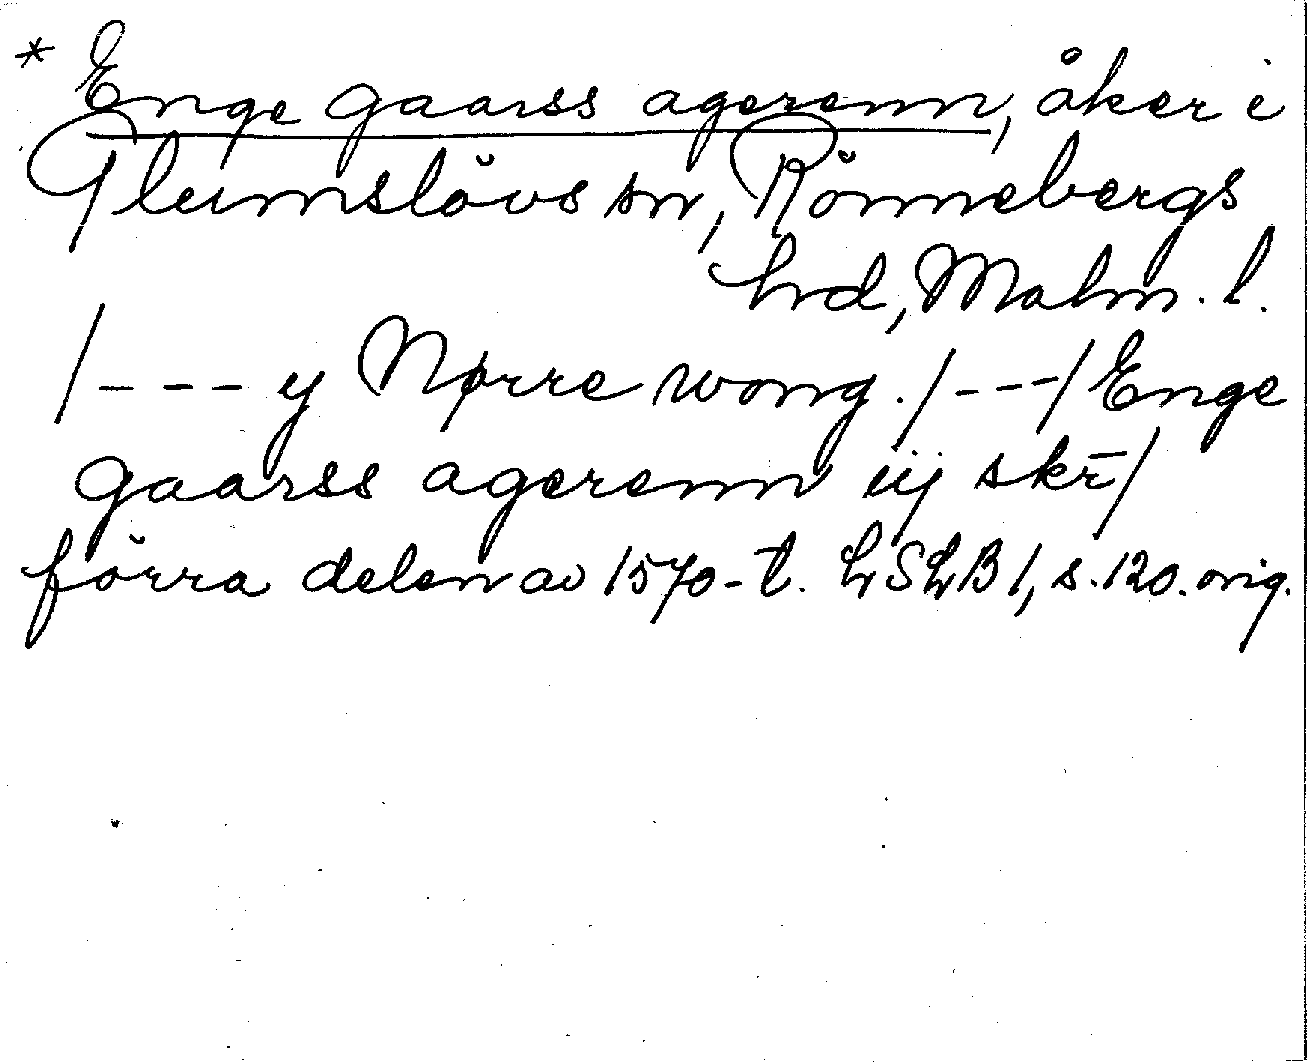 * Enge gaarss agerenn, åker i
Glumslövs sn, Rönnebergs
hrd, Malm. l.
/--- y Nørre wong. /---/ Enge
gaarss agerenn iij skr̄/
förra delen av 1570-t. LSLB 1, s. 120. orig.